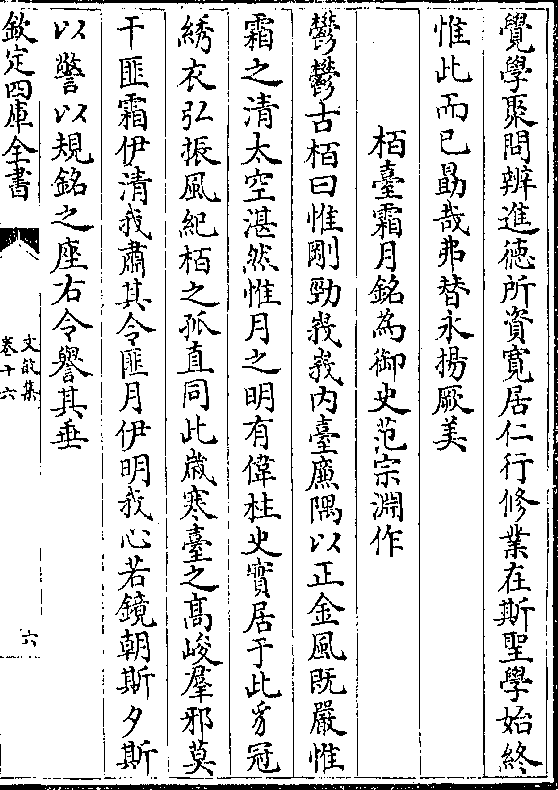 覺學聚問辨進德所資寛居仁行修業在斯聖學始終
惟此而已勗哉弗替永揚厥美
栢臺霜月銘為御史范宗淵作
鬱鬱古栢曰惟剛勁峩峩内臺廉隅以正金風既嚴惟
霜之清太空湛然惟月之明有偉柱史實居于此豸冠
綉衣弘振風紀栢之孤直同此歳寒臺之高峻羣邪莫
干匪霜伊清我肅其令匪月伊明我心若鏡朝斯夕斯
以警以規銘之座右令譽其垂
欽定四庫全書
文敏集
卷十六
六